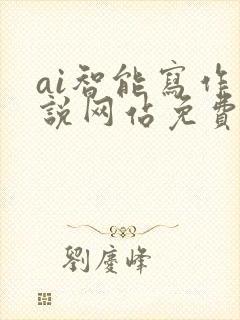 ai智能寫作
說网佔免費
劉慶峰